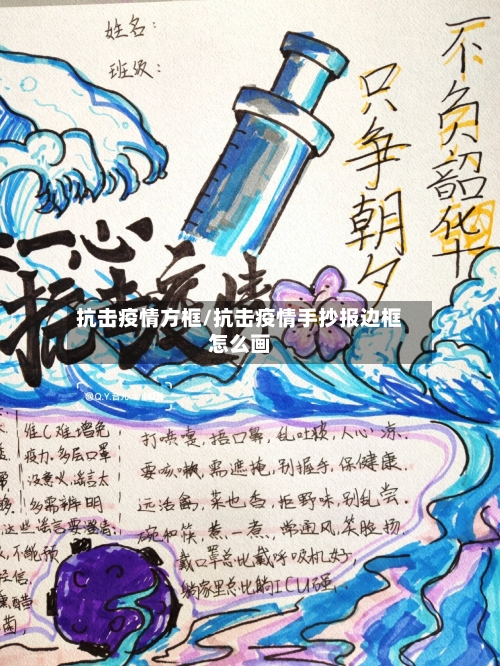 姓名：
班级：
不负韶华
只争朝夕
一心
抗击疫情
抗击疫情方框/抗击疫情手抄报边框
怎么画
维C难增免
疫力,多层口罩
没意义,谣言太
多需辨明
打喷嚏,捂口鼻,乱吐痰,人心凉.
要咳嗽,需遮掩,别握手,保健康.
远活禽,菜也香,拒野味,别乱尝.
碗和筷,煮一煮,常通风,笑脸扬.
戴口罩总比戴呼吸机好,
躺家里总比躺ICU强.